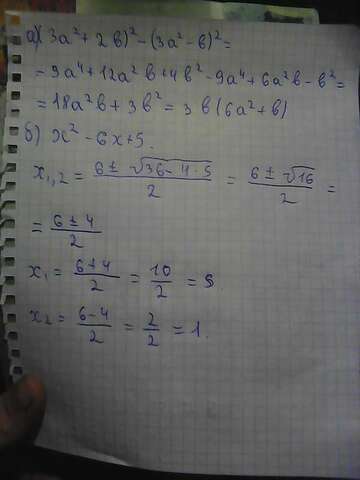 а) (3a² + 2b)² - (3a² - b)² =
= 9a⁴ + 12a²b + 4b² - 9a⁴ + 6a²b - b² =
= 18a²b + 3b² = 3b(6a² + b)
б) x² - 6x + 5.
x₁,₂ = (6 ± √(36 - 4·5))/2 = (6 ± √16)/2 =
= (6 ± 4)/2
x₁ = (6 + 4)/2 = 10/2 = 5
x₂ = (6 - 4)/2 = 2/2 = 1.